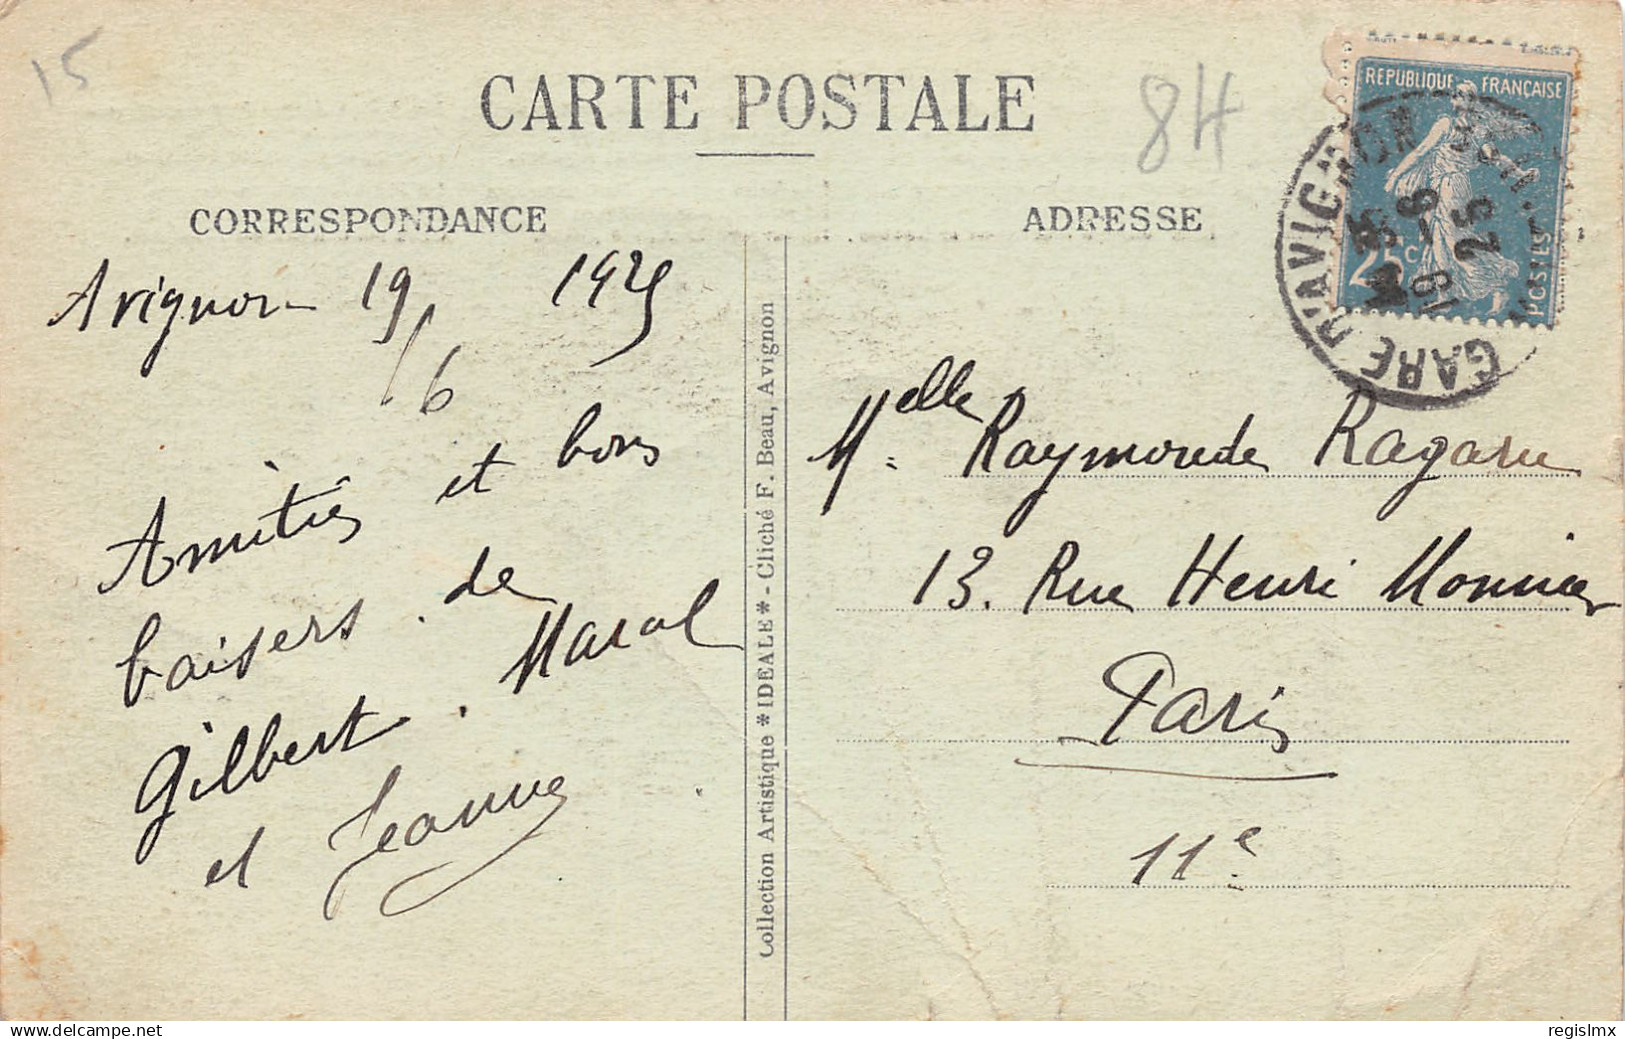 15
CARTE POSTALE
84
CORRESPONDANCE
ADRESSE
REPUBLIQUE FRANÇAISE
25c
POSTES
GARE D'AVIGNON
19 - 6
25
Avignon 19/6 1925
Amitiés et bons
baisers de
Gilbert. Maral
et Jeanne
Collection Artistique *IDEALE* - Cliché F. Beau, Avignon
Melle Raymonde
13. Rue Henri Monnier
Paris
11e
www.delcampe.net
regislmx